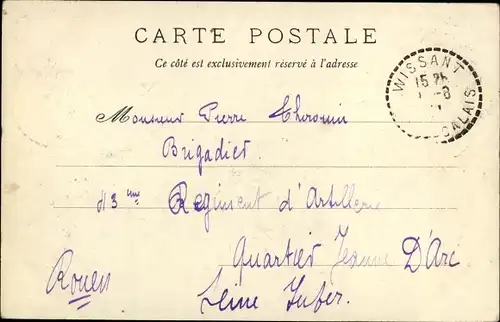 CARTE POSTALE
Ce côté est exclusivement réservé à l'adresse
WISSANT
15
-8
CALAIS
Monsieur Pierre
Brigadier
43 me Regiment d'Artillerie
Quartier Jeanne D'Arc
Rouen
Seine Infer.